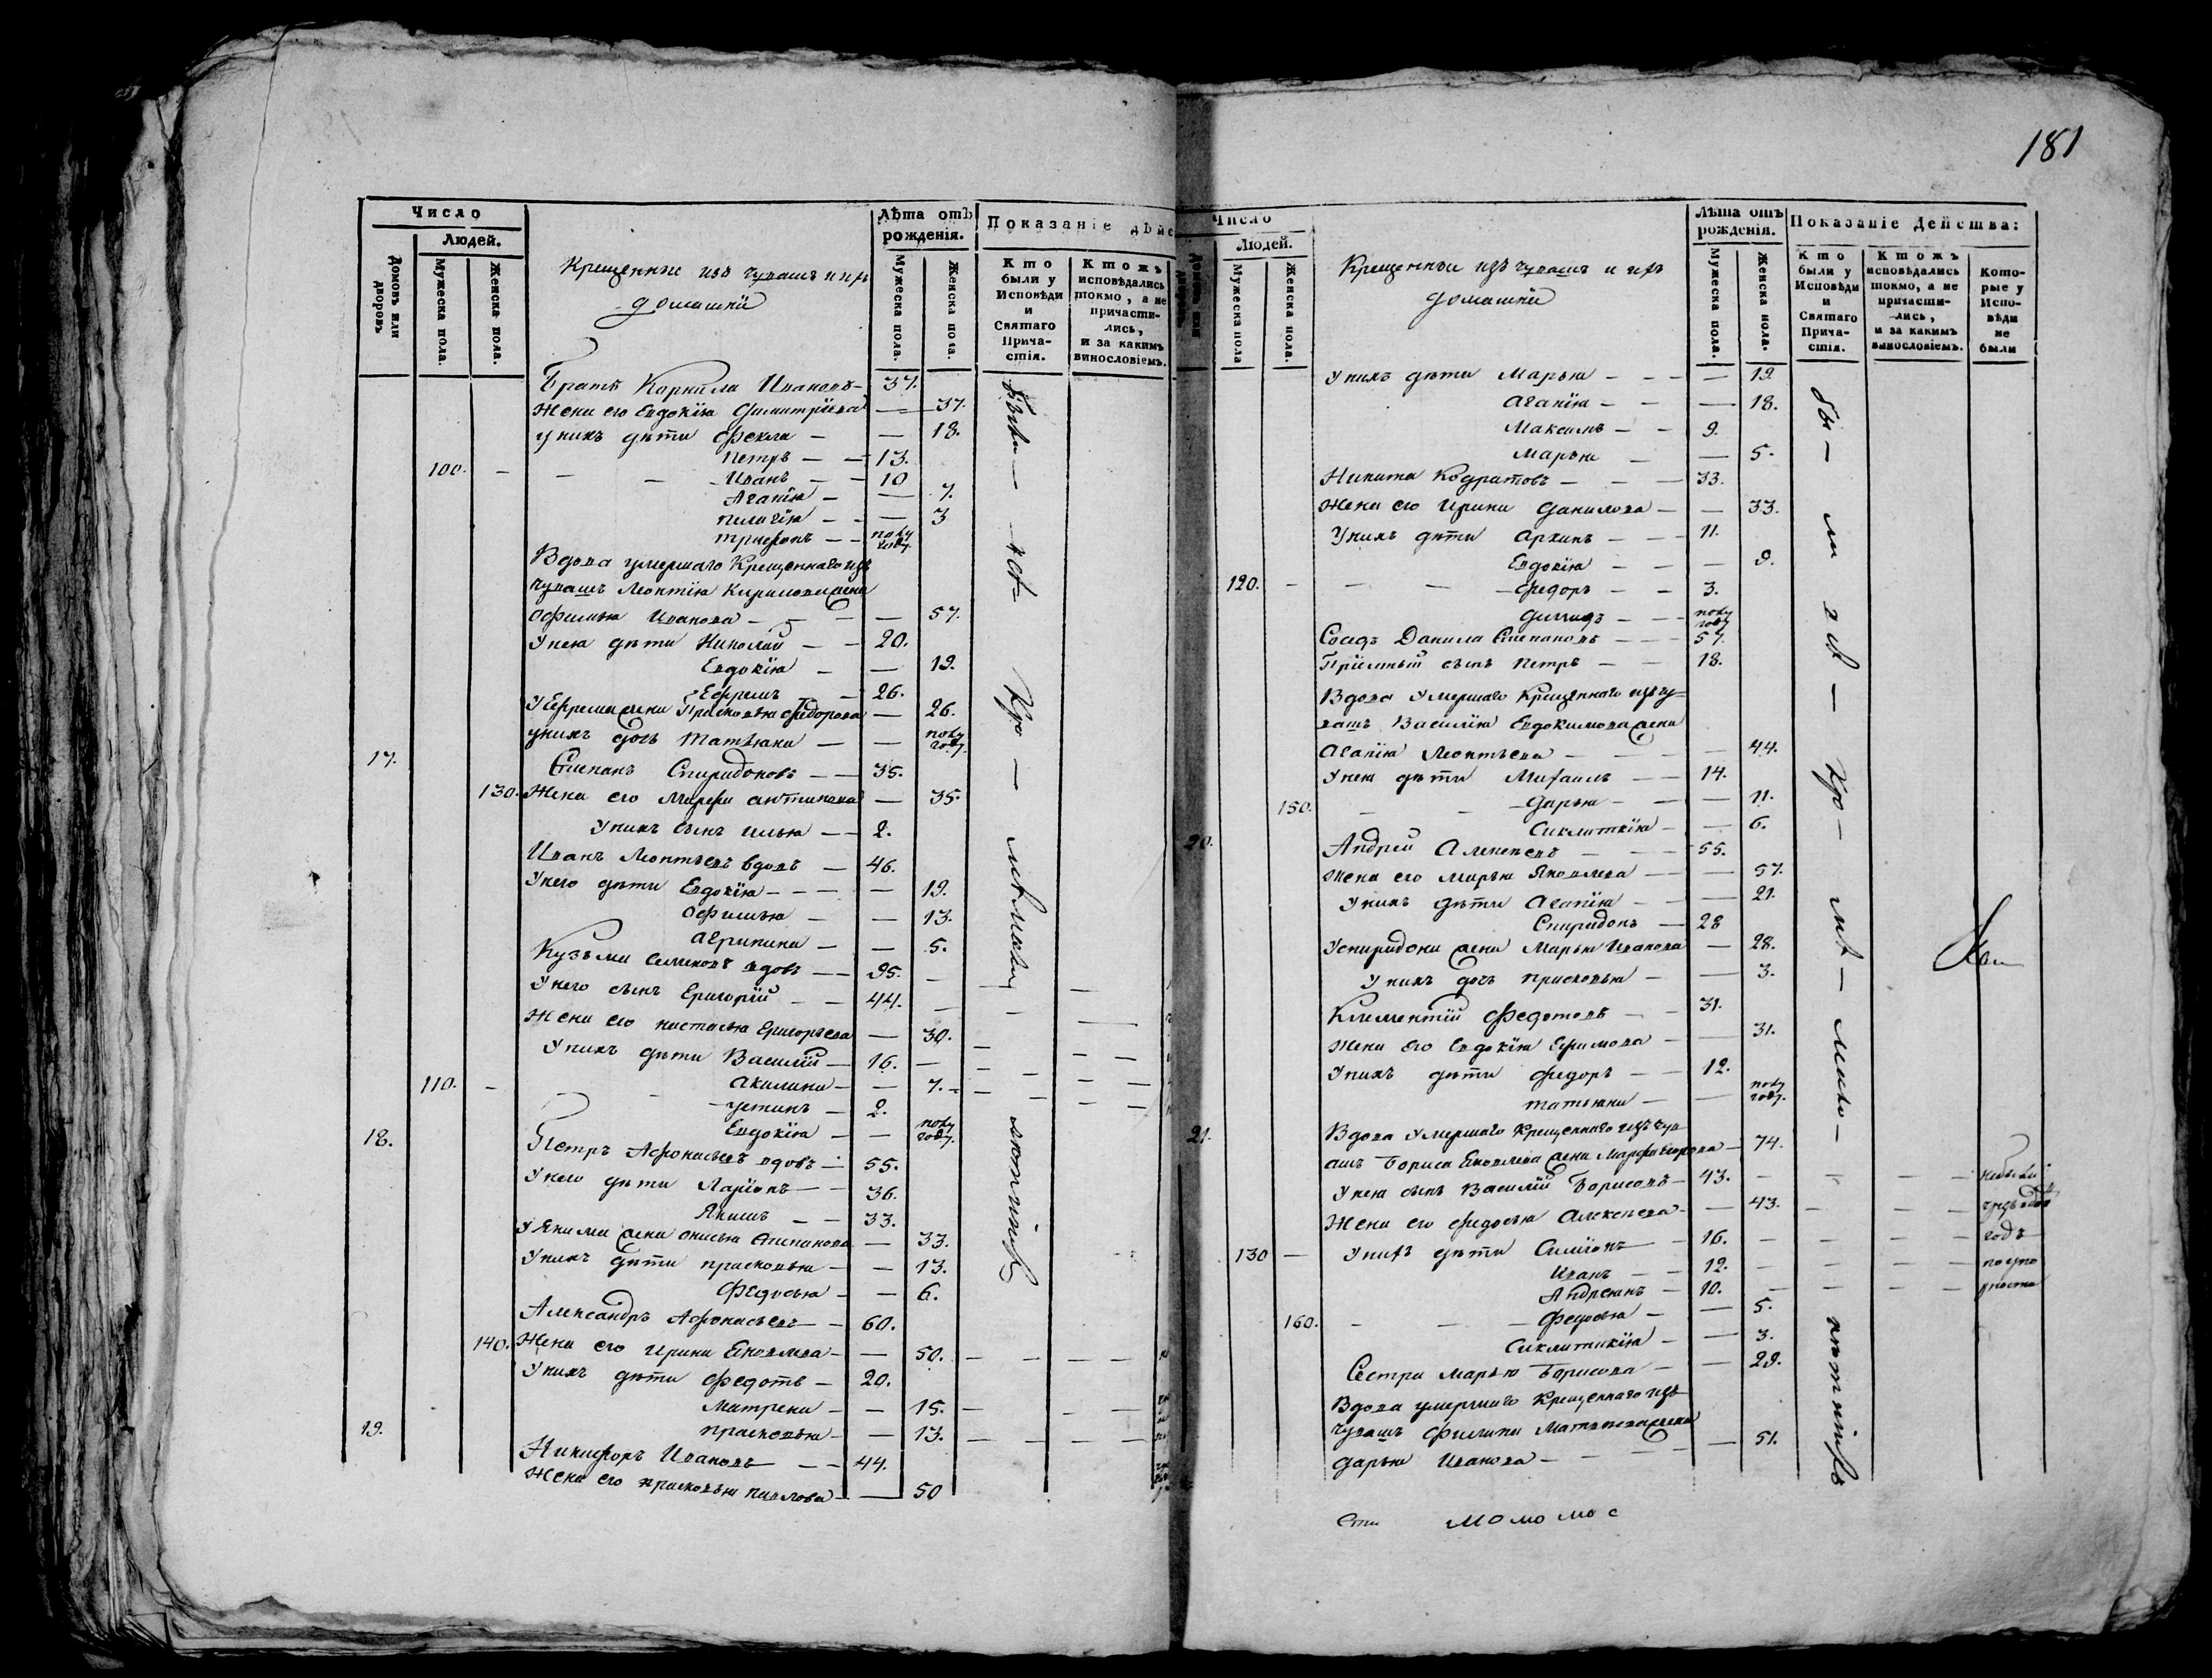 181
Число
Людей.
Домовъ или дворовъ
Мужеска пола.
Женска пола.
Крещенные изъ чувашъ и ихъ
домашніи
Лѣта отъ рожденія.
Мужеска пола.
Женска пола.
Показаніе дѣйс
Кто были у Исповѣди и Святаго Прича-стія.
Ктожъ исповѣдались токмо, а не причасти-лись, и за какимъ винословіемъ.
Братъ Корнила Ивановъ — 37.
Жена его Евдокія Димитріева — 37.
у нихъ дѣти Фекла — — 18.
Петръ — — 13.
100. — Иванъ — — 10
Агапія — — 7.
Пелагія — — 3
Трифонъ — — полу году.
Вдова умершаго Крещеннаго изъ
чувашъ Леонтія Кирилова жена
Офимья Иванова — — 57.
У нея дѣти Николай — — 20.
Евдокія — — 19.
Ефремъ — 26.
У Ефрема жена Прасковья Федорова — 26.
у нихъ дочь Татьяна — — полу году.
17. Степанъ Спиридоновъ — — 35.
130. Жена его Марфа Антипова — 35.
У нихъ сынъ Илья — — 2.
Иванъ Леонтьевъ вдовъ — 46.
У него дѣти Евдокія — — — 19.
Офимья — — 13.
Агрипина — — 5.
Кузьма Семеновъ вдовъ — — 95. —
У него сынъ Григорій — — 44. —
Жена его Настасья Григорьева — 30. —
У нихъ дѣти Василій — 16. —
110. — Акилина — — 7. —
Устинъ — 2.
Евдокія — — полу году.
18. Петръ Афонасьевъ вдовъ — 55.
У него дѣти Ларіонъ — — 36.
Якимъ — — 33.
У Якима жена Онисья Степанова — 33.
У нихъ дѣти Прасковья — — 13.
Федосья — — 6.
Александръ Афонасьевъ — — 60.
140. Жена его Ирина Яковлева — — 50. —
У нихъ дѣти Федотъ — 20.
Матрена — — 15. —
Прасковья — — 13. —
19. Никифоръ Ивановъ — — 44.
Жена его Прасковья Павлова — — 50
Число
Людей.
Мужеска пола
Женска пола.
Крещенные изъ чувашъ и ихъ
домашніи
Лѣта отъ рожденія.
Мужеска пола.
Женска пола.
Показаніе Действа:
Кто были у Исповѣди и Святаго Прича-стія.
Ктожъ исповѣдались токмо, а не причасти-лись, и за какимъ винословіемъ.
Кото-рые у Испо-вѣди не были
У нихъ дѣти Марья — — — 19
Агапія — — — 18.
Максимъ — — 9.
Марья — — 5.
Никита Кодратовъ — — — 33.
Жена его Ирина Данилова — — 33.
У нихъ дѣти Архипъ — — — 11.
Евдокія — — — 9.
120. — Федоръ — — 3.
— — полу году
Соседъ Данила Степановъ — — — 57.
Пріемный сынъ Петръ — — 18.
Вдова умершаго Крещеннаго изъ чу-
вашъ Василія Евдокимова жена
Агапія Леонтьева — — — 44.
У нея дѣти Михаилъ — — 14.
150. — Дарья — — — 11.
Сиклитикія — — 6.
20. Андрей Алексеевъ — — — 55.
Жена его Марья Яковлева — — — 57.
У нихъ дѣти Агапія — — — 21.
Спиридонъ — 28
У Спиридона жена Марья Иванова — 28.
У нихъ дочь Прасковья — — 3.
Климентій Федотовъ — — 31.
Жена его Евдокія Ефимова — — 31.
У нихъ дѣти Федоръ — — 12.
Татьяна — — полу году.
21. Вдова умершаго Крещеннаго изъ чув-
ашъ Бориса Яковлева жена Марфа Егорова — 74.
У нея сынъ Василій Борисовъ — 43. — небыли
Жена его Федосья Алексеева — — 43. —
130 — У нихъ дѣти Симіонъ — 16. — годъ
Иванъ — — 12. —
Андреянъ — 10. —
160. — Федосья — — 5.
Сиклитикія — — 3.
Сестра Марья Борисова — — 29.
Вдова умершаго Крещеннаго изъ
чувашъ Филипа Матвеева жена
Дарья Иванова — — 51.